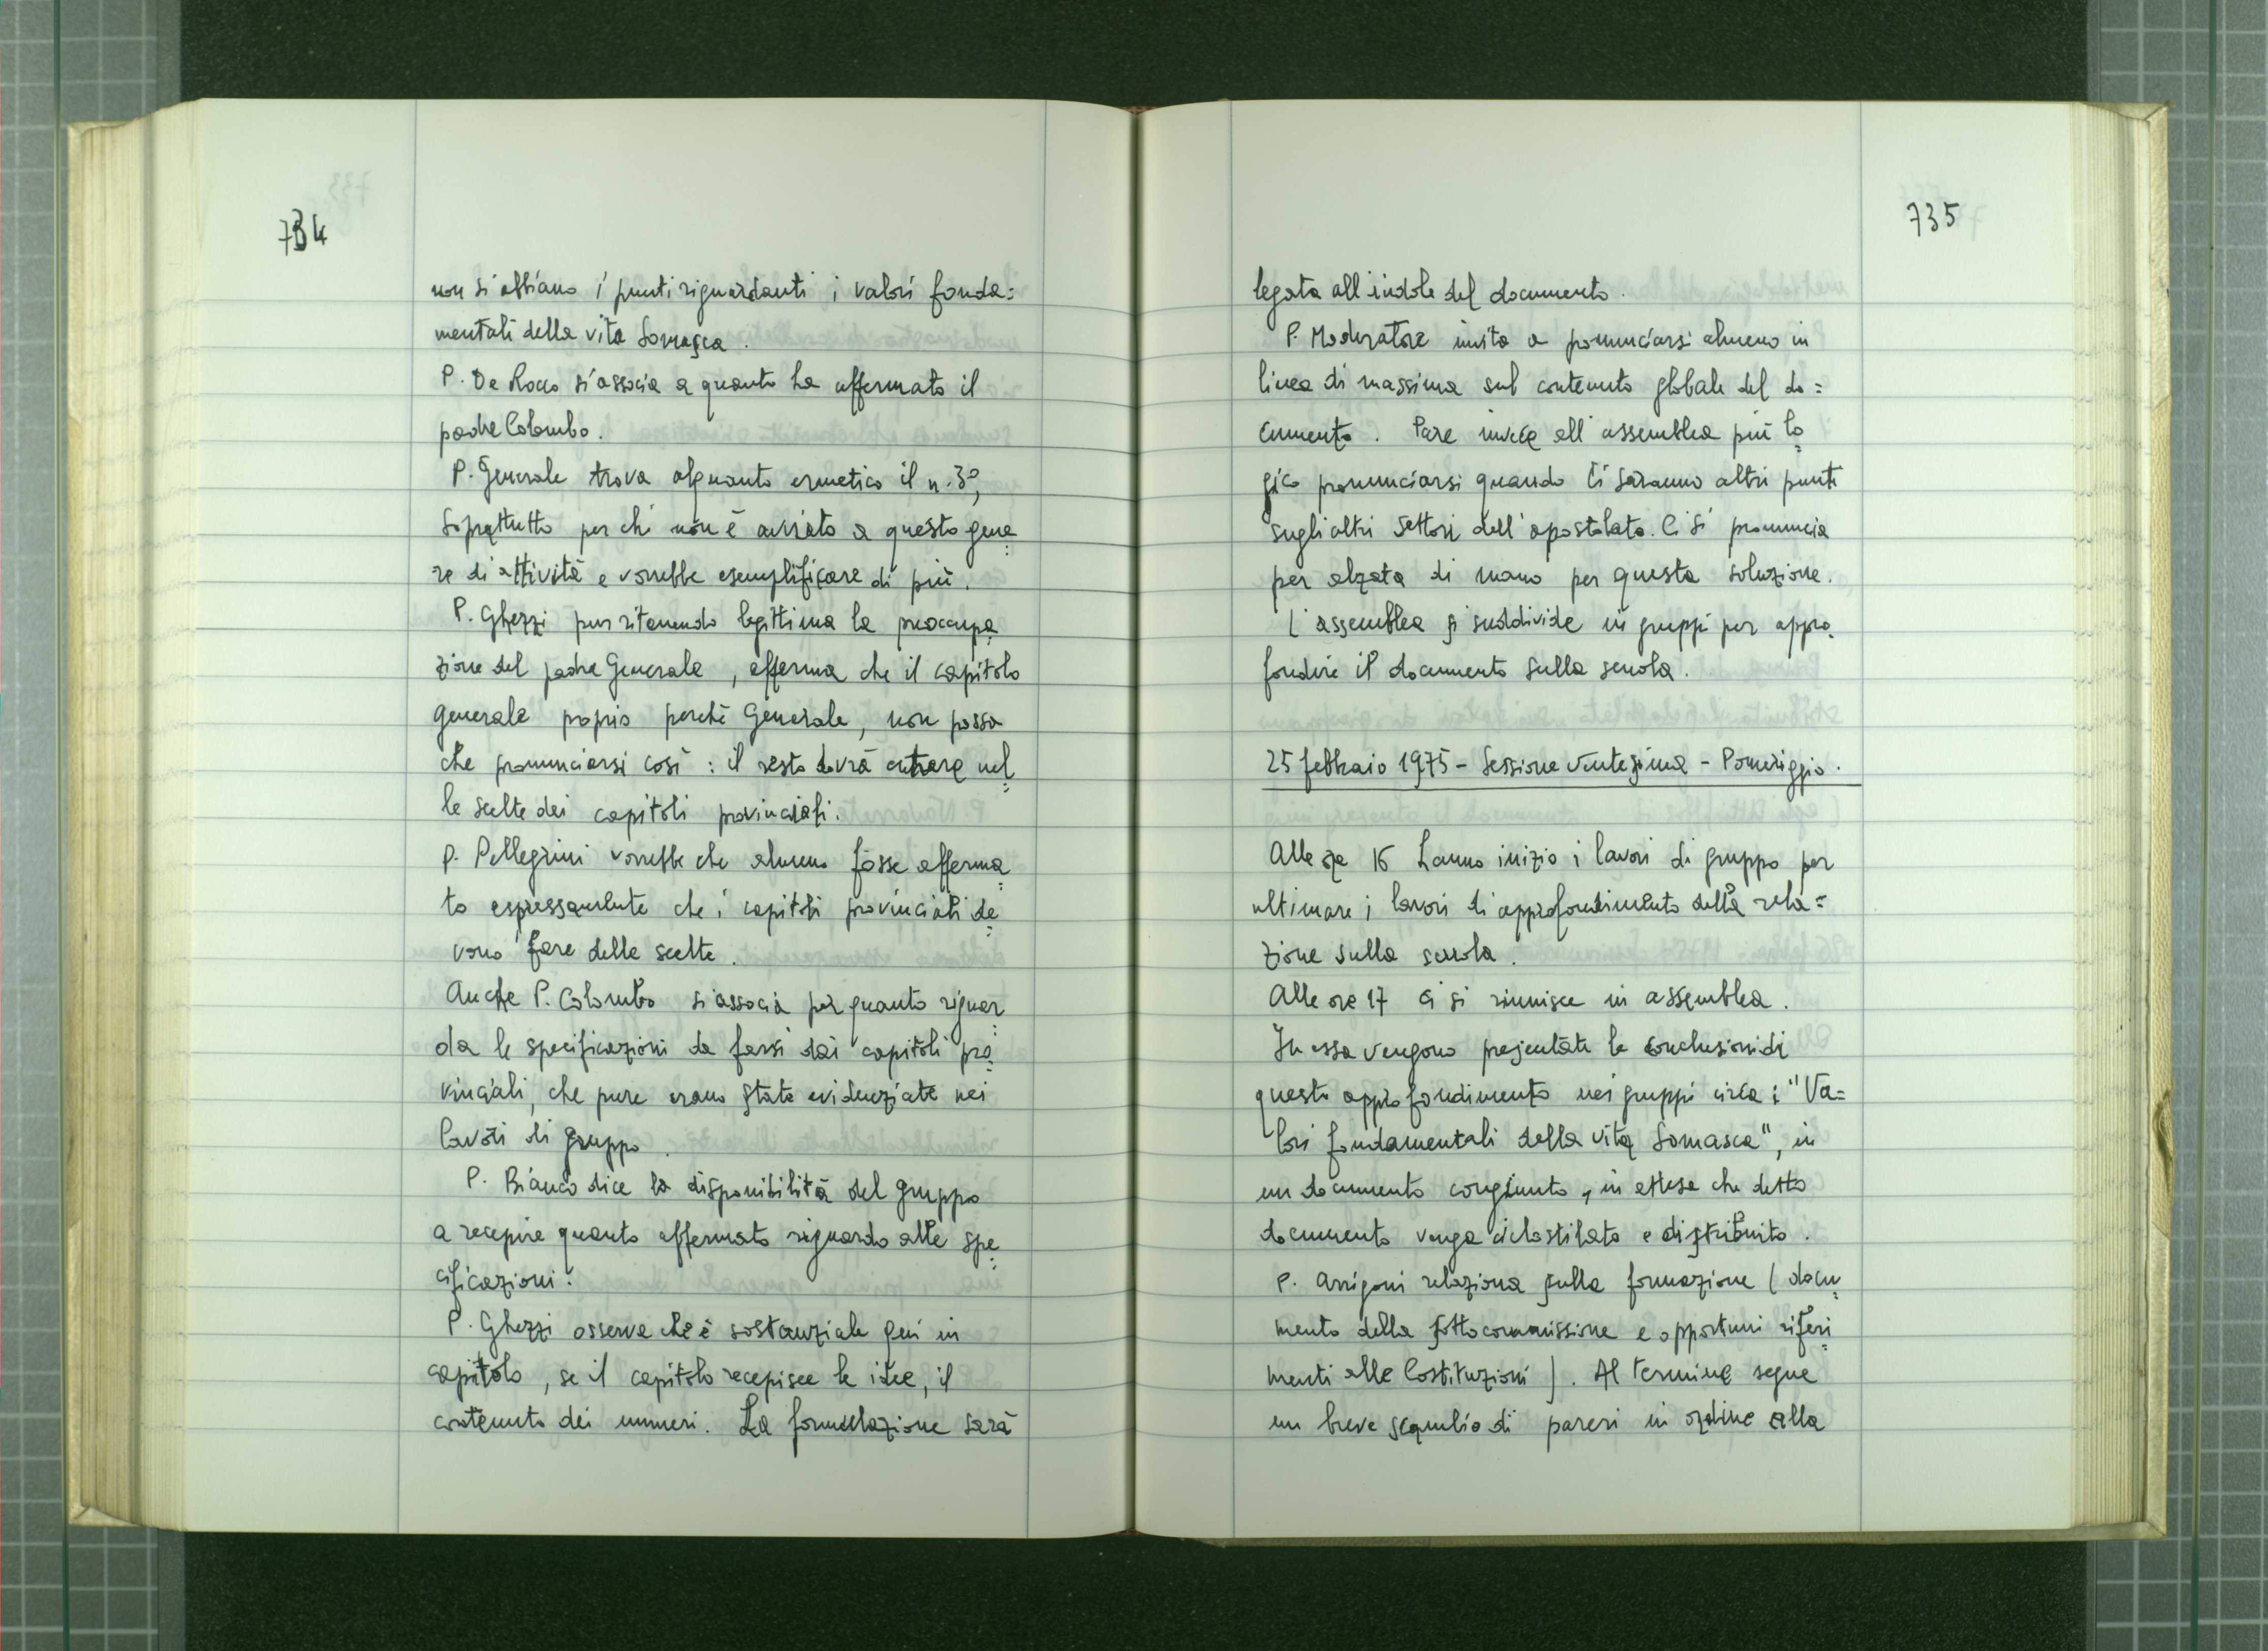 734
non si abbiano i punti riguardanti i valori fonda=
mentali della vita Somasca.
P. De Rocco si associa a quanto ha affermato il
padre Colombo.
P. Generale trova alquanto ermetico il n. 3°,
soprattutto per chi non è avviato a questo gene=
re di attività e vorrebbe esemplificare di più.
P. Ghezzi pur ritenendo legittima la preoccupa=
zione del padre Generale, afferma che il capitolo
generale proprio perché Generale, non possa
che pronunciarsi così: il resto dovrà entrare nel=
le scelte dei capitoli provinciali.
P. Pellegrini vorrebbe che almeno fosse afferma=
to espressamente che i capitoli provinciali de=
vono fare delle scelte.
Anche P. Colombo si associa per quanto riguar=
da le specificazioni da farsi dai capitoli pro=
vinciali, che pure erano state evidenziate nei
lavori di gruppo.
P. Bianco dice la disponibilità del gruppo
a recepire quanto affermato riguardo alle spe=
cificazioni.
P. Ghezzi osserva che è sostanziale qui in
capitolo, se il capitolo recepisce le idee, il
contenuto dei numeri. La formulazione sarà
735
legata all'indole del documento.
P. Moderatore invita a pronunciarsi almeno in
linea di massima sul contenuto globale del do=
cumento. Pare invece all'assemblea più lo=
gico pronunciarsi quando ci saranno altri punti
sugli altri settori dell'apostolato. Ci si pronuncia
per alzata di mano per questa soluzione.
L'assemblea si suddivide in gruppi per appro=
fondire il documento sulla scuola.
25 febbraio 1975 - Sessione ventesima - Pomeriggio.
Alle ore 16 hanno inizio i lavori di gruppo per
ultimare i lavori di approfondimento della rela=
zione sulla scuola.
Alle ore 17 ci si riunisce in assemblea.
In essa vengono presentate le conclusioni di
questo approfondimento nei gruppi circa i "Va=
lori fondamentali della vita Somasca", in
un documento congiunto, in attesa che detto
documento venga ciclostilato e distribuito.
P. Arrigoni relaziona sulla formazione (docu=
mento della sottocommissione e opportuni riferi=
menti alle Costituzioni). Al termine segue
un breve scambio di pareri in ordine alla